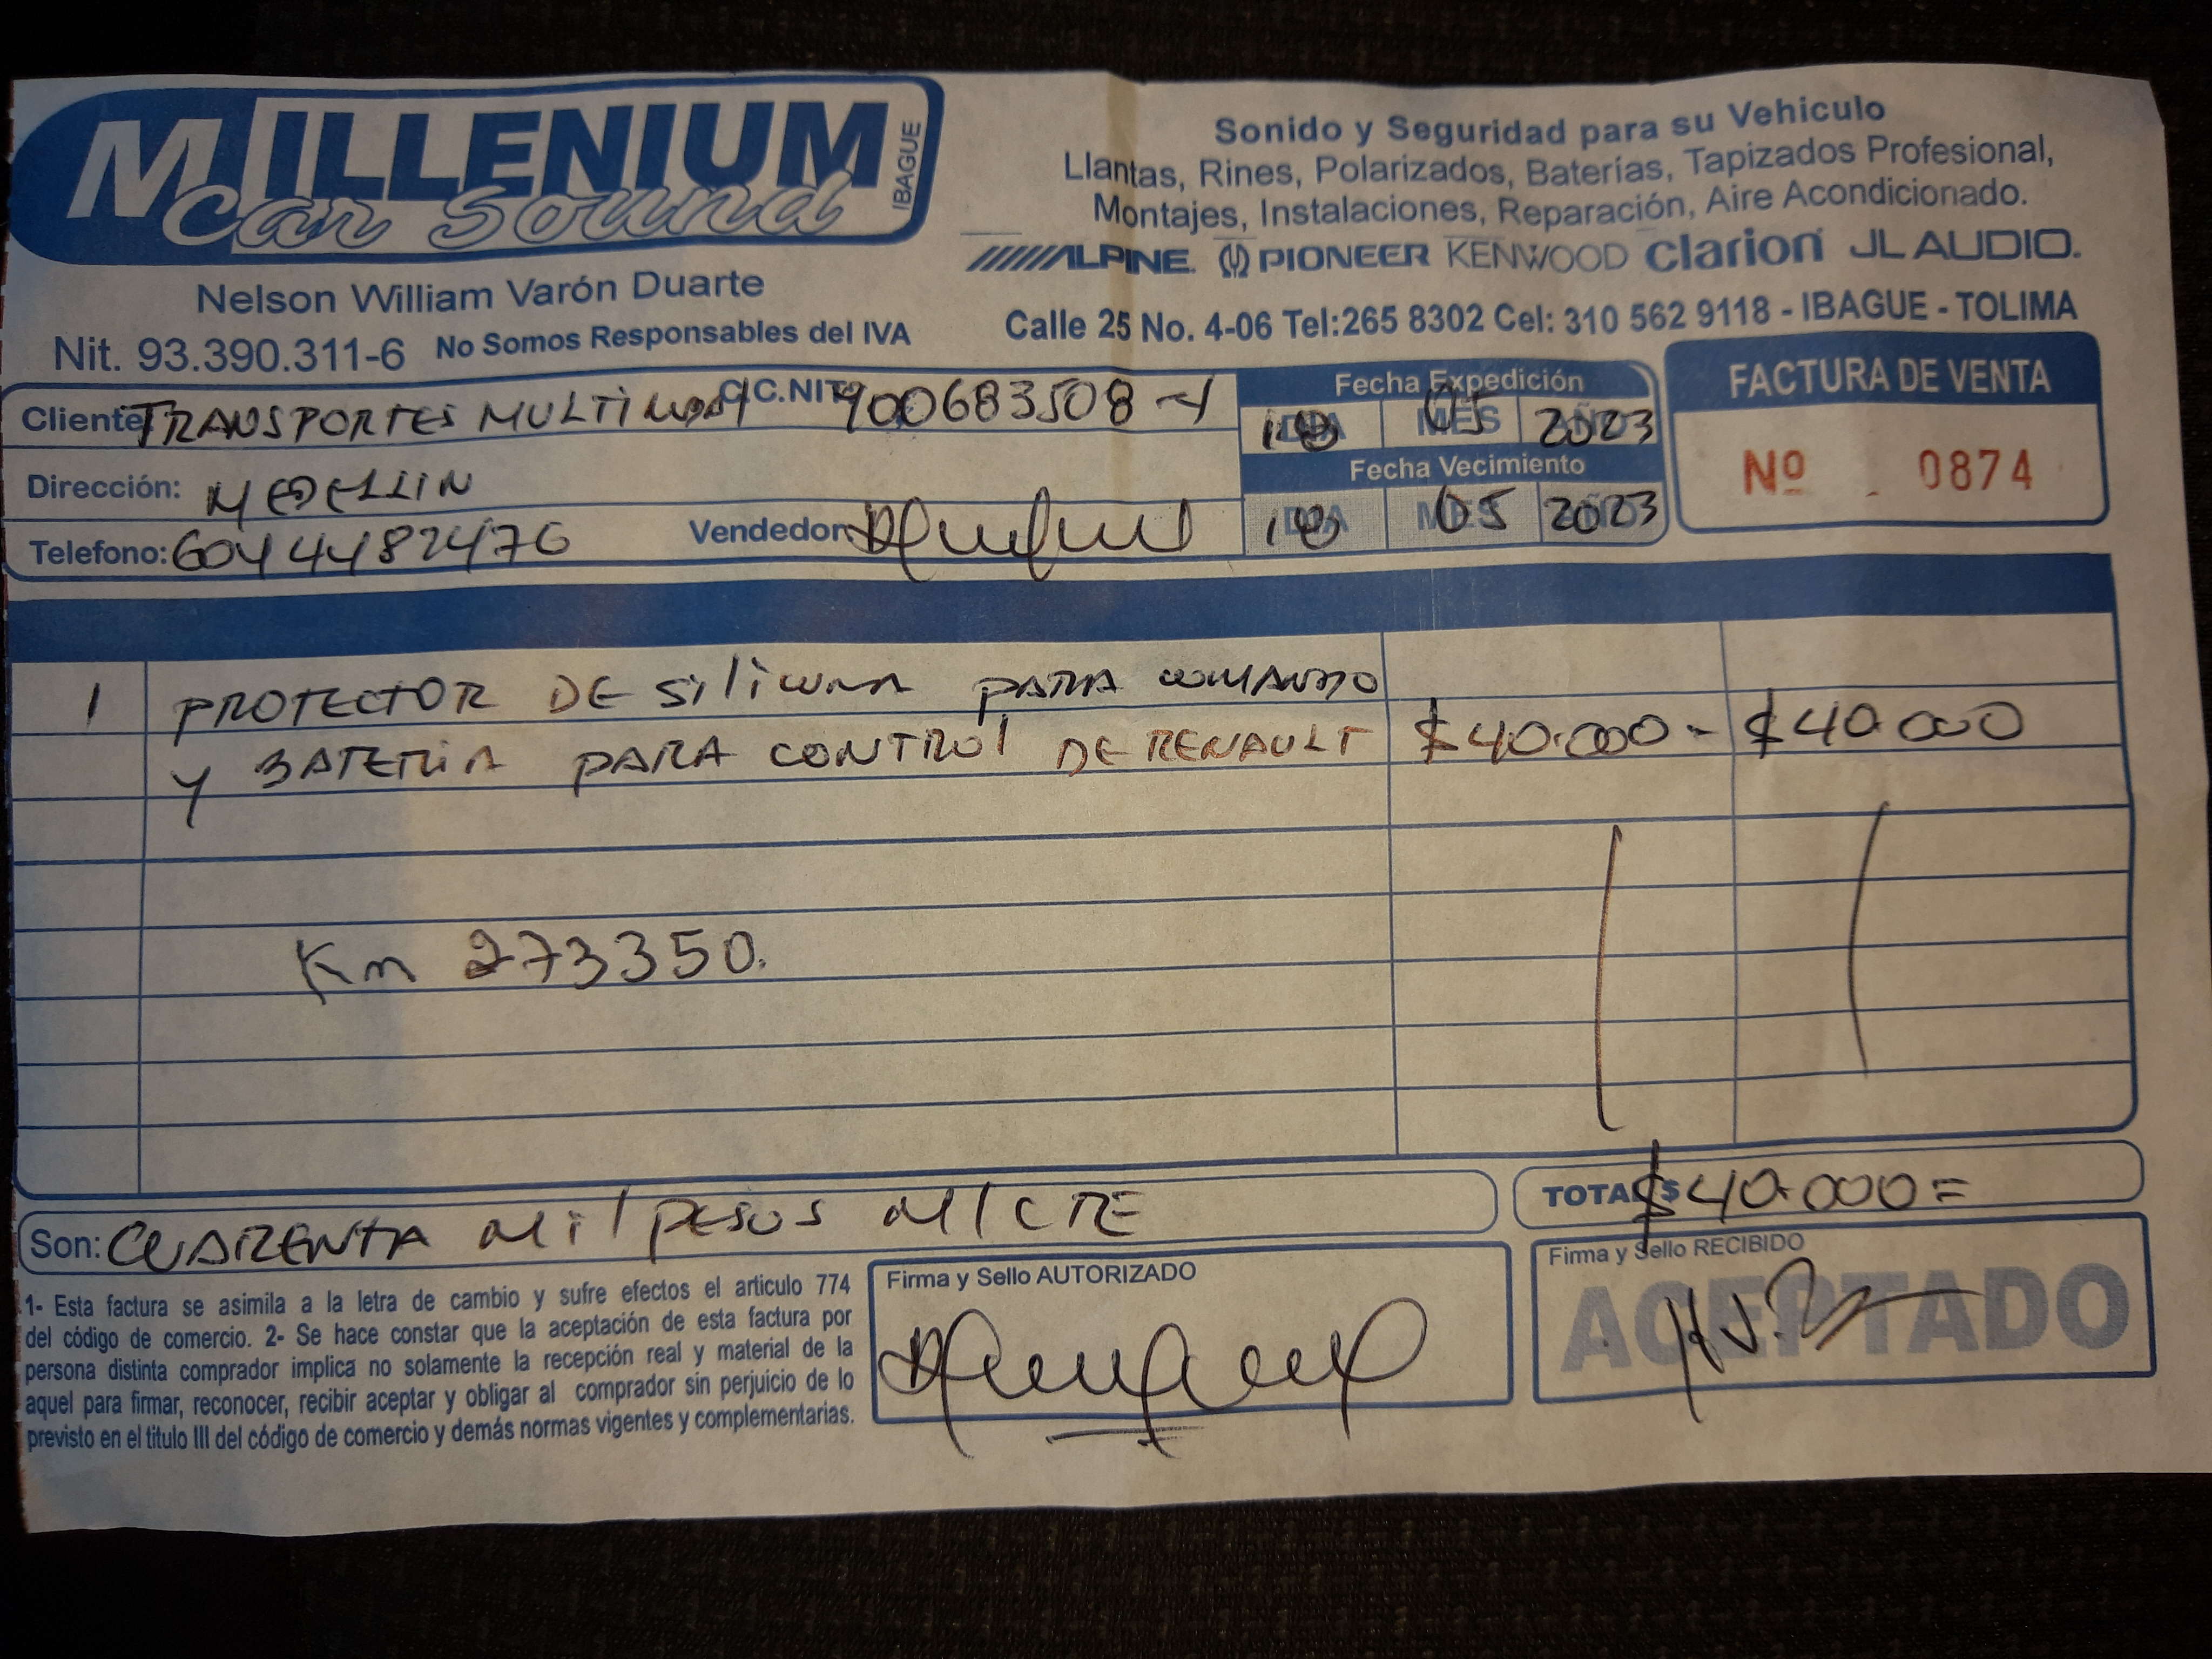 MILLENIUM
Car Sound
IBAGUE
Nelson William Varón Duarte
Nit. 93.390.311-6 No Somos Responsables del IVA
Sonido y Seguridad para su Vehiculo
Llantas, Rines, Polarizados, Baterías, Tapizados Profesional,
Montajes, Instalaciones, Reparación, Aire Acondicionado.
ALPINE. PIONEER KENWOOD clarion JL AUDIO.
Calle 25 No. 4-06 Tel:265 8302 Cel: 310 562 9118 - IBAGUE - TOLIMA
Cliente TRANSPORTES C.C.NIT 900683508-1
Dirección: MEDELLIN
Telefono: 6044482476 Vendedor
Fecha Expedición
DIA MES AÑO
18 05 2023
Fecha Vecimiento
DIA MES AÑO
18 05 2023
FACTURA DE VENTA
Nº 0874
1 PROTECTOR DE SILICONA PARA COMANDO
Y BATERIA PARA CONTROL DE RENAULT $40.000- $40.000
Km 273350.
TOTAL $ $40.000=
Son: CUARENTA Mil PESOS M/CTE
1- Esta factura se asimila a la letra de cambio y sufre efectos el articulo 774
del código de comercio. 2- Se hace constar que la aceptación de esta factura por
persona distinta comprador implica no solamente la recepción real y material de la
aquel para firmar, reconocer, recibir aceptar y obligar al comprador sin perjuicio de lo
previsto en el titulo III del código de comercio y demás normas vigentes y complementarias.
Firma y Sello AUTORIZADO
Firma y Sello RECIBIDO
ACEPTADO